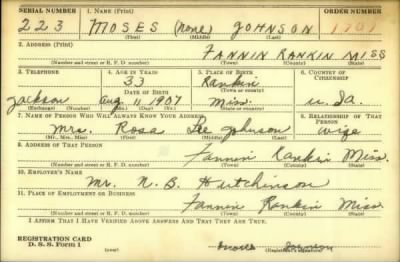 SERIAL NUMBER 1. NAME (Print) ORDER NUMBER
223 MOSES (none) JOHNSON 1707
(First) (Middle) (Last)
2. ADDRESS (Print)
FANNIN RANKIN MISS
(Number and street or R. F. D. number) (Town) (County) (State)
3. TELEPHONE 4. AGE IN YEARS 5. PLACE OF BIRTH 6. COUNTRY OF CITIZENSHIP
33 Rankin
DATE OF BIRTH (Town or county)
Jackson Aug 11 1907 Miss. U.S.A.
(Exchange) (Number) (Mo.) (Day) (Yr.) (State or country)
7. NAME OF PERSON WHO WILL ALWAYS KNOW YOUR ADDRESS 8. RELATIONSHIP OF THAT PERSON
Mrs. Rosa Lee Johnson wife
(Mr., Mrs., Miss) (First) (Middle) (Last)
9. ADDRESS OF THAT PERSON
Fannin Rankin Miss.
(Number and street or R. F. D. number) (Town) (County) (State)
10. EMPLOYER'S NAME
Mr. N. B. Hutchinson
11. PLACE OF EMPLOYMENT OR BUSINESS
Fannin Rankin Miss
(Number and street or R. F. D. number) (Town) (County) (State)
I AFFIRM THAT I HAVE VERIFIED ABOVE ANSWERS AND THAT THEY ARE TRUE.
REGISTRATION CARD
D. S. S. Form 1 (over) (Registrant's signature)